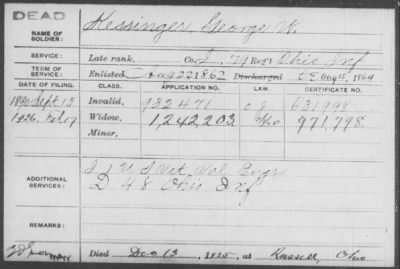 DEAD
NAME OF SOLDIER: Kessinger, George W.
SERVICE: Late rank, Co. I, 79 Reg't Ohio Inf
TERM OF SERVICE: Enlisted Aug 22 1862 Discharged Aug 15, 1864
DATE OF FILING. CLASS. APPLICATION NO. LAW. CERTIFICATE NO.
1890 Sept 12 Invalid, 932471 631998
1926. Widow, 1,242,203 971,798
Minor,
ADDITIONAL SERVICES: I 1 U S Vet Vol Engrs
D 48 Ohio Inf
REMARKS:
Died Dec 13, 1925, at Russell, Ohio